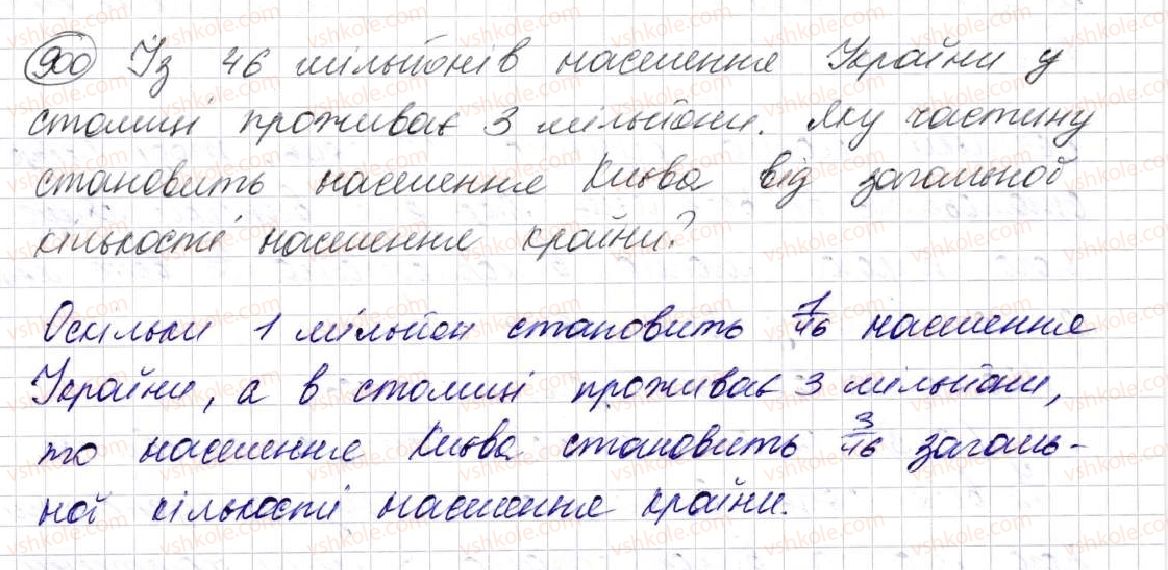 900 Із 46 мільйонів населення України у
столиці проживає 3 мільйони. Яку частину
становить населення Києва від загальної
кількості населення країни?
Оскільки 1 мільйон становить 1/46 населення
України, а в столиці проживає 3 мільйони,
то населення Києва становить 3/46 загаль-
ної кількості населення країни.